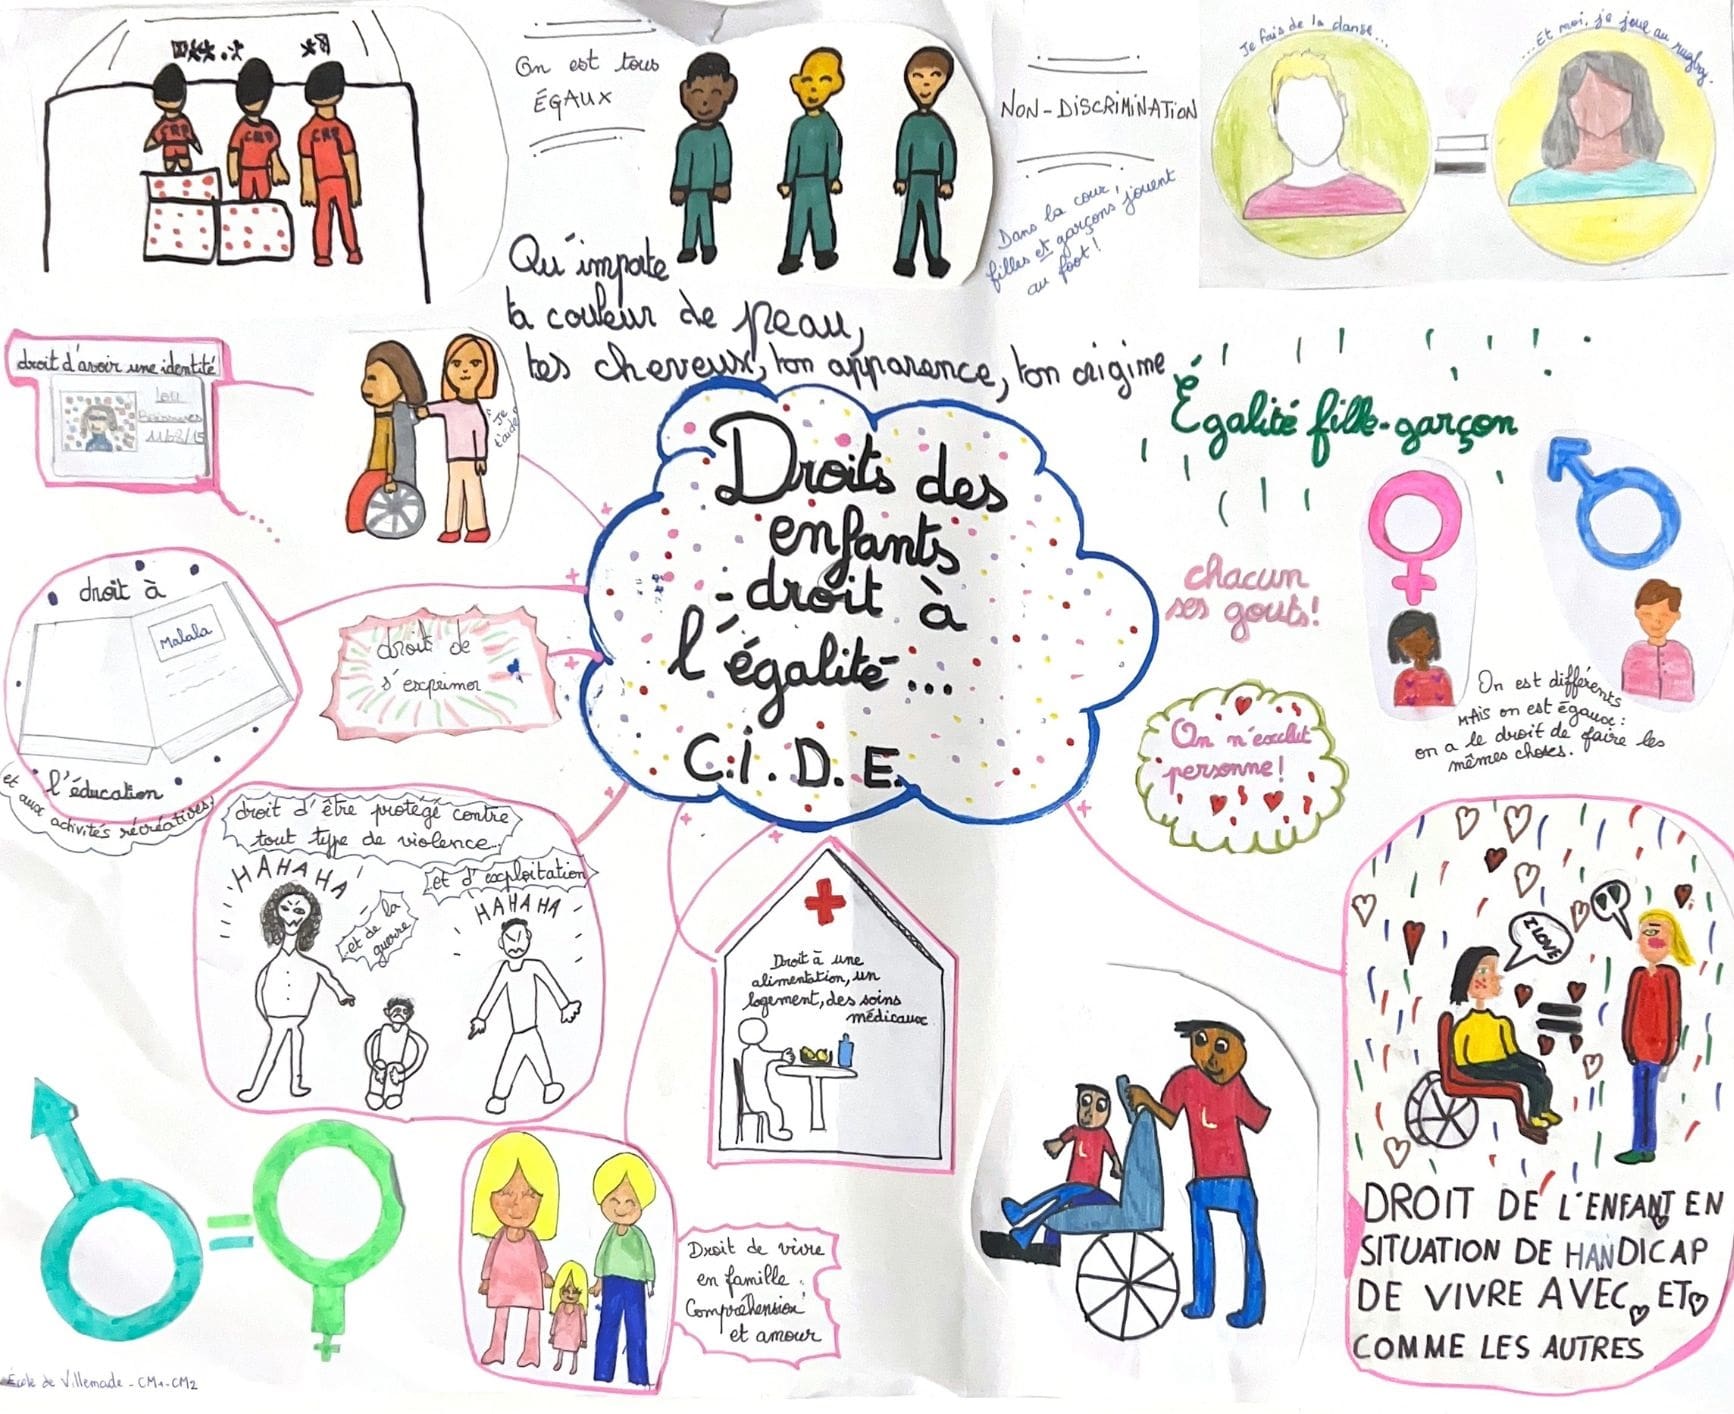 On est tous
ÉGAUX
NON-DISCRIMINATION
Je fais de la danse...
...Et moi, je joue au rugby.
Dans la cour,
filles et garçons jouent
au foot!
Qu'importe
ta couleur de peau,
tes cheveux, ton apparence, ton origine
droit d'avoir une identité
Lou
je
t'aide
Égalité fille-garçon
Droits des
enfants
- droit à
l'égalité...
C.I.D.E.
chacun
ses gouts!
droit à
Malala
l'éducation
et aux activités récréatives
droit de
s'exprimer
On n'exclut
personne!
On est différents
mais on est égaux:
on a le droit de faire les
mêmes choses.
droit d'être protégé contre
tout type de violence
et d'exploitation
et de la
guerre
HAHAHA
HAHAHA
Droit à une
alimentation, un
logement, des soins
médicaux
I LOVE
DROIT DE L'ENFANT EN
SITUATION DE HANDICAP
DE VIVRE AVEC ET
COMME LES AUTRES
Droit de vivre
en famille.
Compréhension
et amour
École de Villemade - CM1-CM2